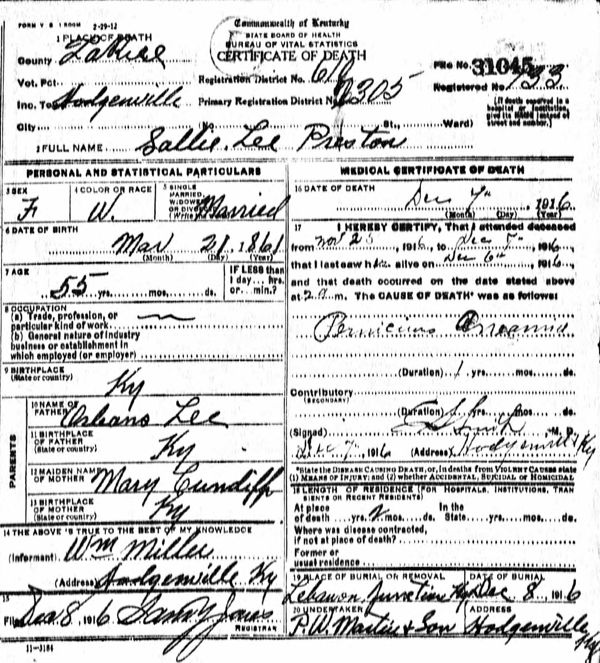 FORM V S 1 2-29-12
Commonwealth of Kentucky
STATE BOARD OF HEALTH
BUREAU OF VITAL STATISTICS
CERTIFICATE OF DEATH
1 PLACE OF DEATH
County LaRue
File No. 31045
Vot. Pct. Registration District No.
Registered No. 133
Inc. To Hodgenville Primary Registration District No. 2305
(If death occurred in a hospital or institution, give its NAME instead of street and number.)
City No. St., Ward)
2 FULL NAME Sallie Lee Preston
PERSONAL AND STATISTICAL PARTICULARS
3 SEX F
4 COLOR OR RACE W.
5 SINGLE MARRIED, WIDOWED OR DIVORCED (Write the word) Married
6 DATE OF BIRTH
Mar 21, 1861
(Month) (Day) (Year)
7 AGE
55 yrs. mos. ds.
IF LESS than 1 day... hrs. or... min.?
8 OCCUPATION
(a) Trade, profession, or particular kind of work
(b) General nature of industry business or establishment in which employed (or employer)
9 BIRTHPLACE (State or country) Ky
PARENTS
10 NAME OF FATHER Orleans Lee
11 BIRTHPLACE OF FATHER (State or country) Ky
12 MAIDEN NAME OF MOTHER Mary Cundiff
13 BIRTHPLACE OF MOTHER (State or country) Ky
14 THE ABOVE IS TRUE TO THE BEST OF MY KNOWLEDGE
(Informant) Wm Miller
(Address) Hodgenville Ky
15
Filed Dec 8, 1916
REGISTRAR
11-3184
MEDICAL CERTIFICATE OF DEATH
16 DATE OF DEATH
Dec 7th 1916
(Month) (Day) (Year)
17 I HEREBY CERTIFY, That I attended deceased
from Nov 25 1916, to Dec 7th 1916
that I last saw h alive on Dec 6th 1916,
and that death occurred on the date stated above
at m. The CAUSE OF DEATH* was as follows:
Pernicious Anaemia
(Duration) 1 yrs. mos. ds.
Contributory (SECONDARY)
(Duration) yrs. mos. ds.
(Signed) Smith M. D.
Dec 7th, 1916 (Address) Hodgenville Ky
*State the DISEASE CAUSING DEATH, or, in deaths from VIOLENT CAUSES state
(1) MEANS OF INJURY; and (2) whether ACCIDENTAL, SUICIDAL or HOMICIDAL
18 LENGTH OF RESIDENCE (FOR HOSPITALS, INSTITUTIONS, TRANSIENTS OR RECENT RESIDENTS)
At place of death yrs. 2 mos. ds. In the State yrs. mos. ds.
Where was disease contracted,
if not at place of death?
Former or
usual residence
19 PLACE OF BURIAL OR REMOVAL DATE OF BURIAL
Lebanon Junction Ky Dec 8, 1916
20 UNDERTAKER ADDRESS
P. W. Martin & Son Hodgenville Ky